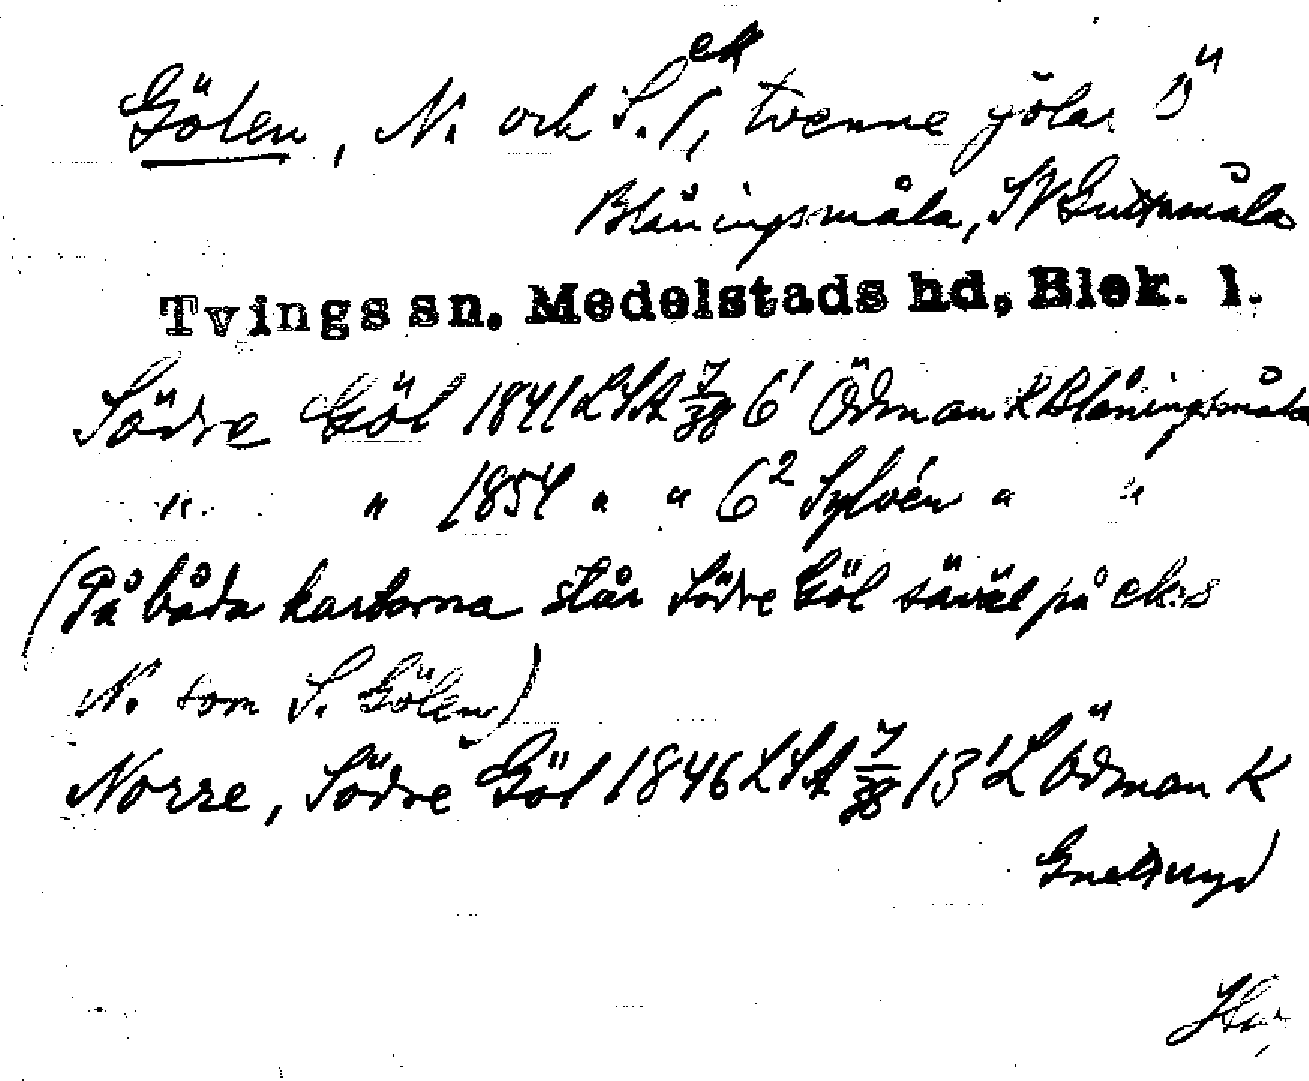 Gölen, N. och S. /, ek tvenne gölar Ö
Blåningsmåla, SV Guttamåla
Tvings sn. Medelstads hd, Blek. l.
Södre Göl 1841 LSA 7/38 6¹ Ödman K Blåningsmåla
" " 1854 " " 6² Sylvén " "
(På båda kartorna står Södre Göl såväl på ek:s
N. som S. Gölen)
Norre, Södre Göl 1846 LSA 7/38 13¹ L Ödman K
Gnetteryd